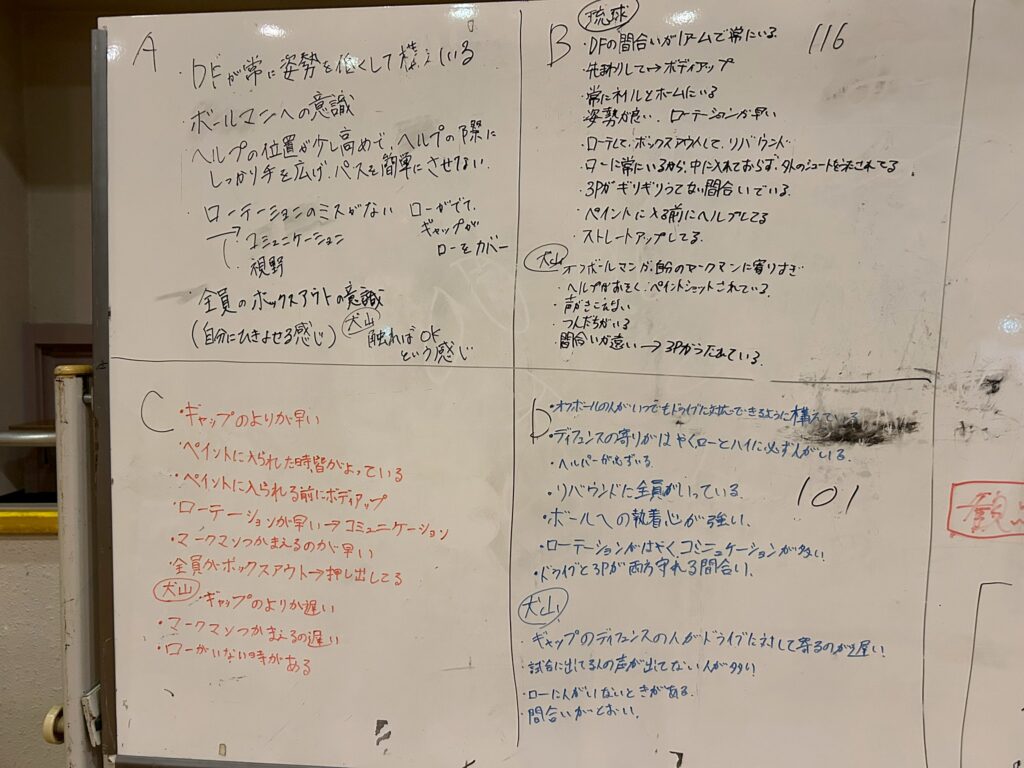 A
・DFが常に姿勢を低くして構えている
・ボールマンへの意識
・ヘルプの位置が少し高めで、ヘルプの際に
しっかり手を広げ、パスを簡単にさせない.
・ローテーションのミスがない
→ コミュニケーション
・視野
ローがでて、
ギャップが
ローをカバー
・全員のボックスアウトの意識
(自分にひきよせる感じ)
犬山
触ればOK
という感じ
B
琉球
116
・DFの間合いが1アームで常にいる.
・先まわりして→ボディアップ
・常にネイルとホームにいる
・姿勢が良い、ローテーションが早い
・ローテして、ボックスアウトして、リバウンド
・ローに常にいるから、中に入れておらず、外のシュートをうたされてる
・3Pがギリギリうてない間合いでいる.
・ペイントに入る前にヘルプしてる
・ストレートアップしてる.
犬山
・オフボールマンが、自分のマークマンに寄りすぎ
・ヘルプがおそく、ペイントショットされている.
・声がきこえない
・つったちがいる
・間合いが遠い→3Pがうたれている.
C
・ギャップのよりが早い
・ペイントに入られた時、皆がよっている
・ペイントに入られる前にボディアップ
・ローテーションが早い→コミュニケーション
・マークマンつかまえるのが早い
・全員がボックスアウト→押し出してる
犬山
・ギャップのよりが遅い
・マークマンつかまえるの遅い
・ローがいない時がある
D
・オフボールの人がいつでもドライブに対応できるように構えている
・ディフェンスの寄りがはやくローとハイに必ず人がいる.
・ヘルパーが必ずいる.
・リバウンドに全員がいっている.
101
・ボールへの執着心が強い.
・ローテーションがはやく、コミニュケーションが多い
・ドライブと3Pが両方守れる間合い.
犬山
・ギャップのディフェンスの人がドライブに対して寄るのが遅い.
・試合に出てる人の声が出てない人が多い
・ローに人がいないときがある.
・間合いがとおい.